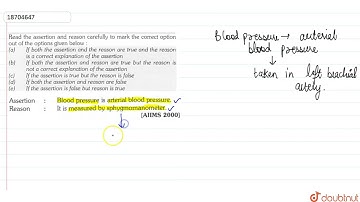 18704647
Read the assertion and reason carefully to mark the correct option
out of the options given below :
(a) If both the assertion and the reason are true and the reason
is a correct explanation of the assertion
(b) If both the assertion and reason are true but the reason is
not a correct explanation of the assertion
(c) If the assertion is true but the reason is false
(d) If both the assertion and reason are false
(e) If the assertion is false but reason is true
Assertion : Blood pressure is arterial blood pressure.
Reason : It is measured by sphygmomanometer.
[AIIMS 2000]
blood pressure → arterial
blood pressure
taken in left brachial
artery.
doubtnut